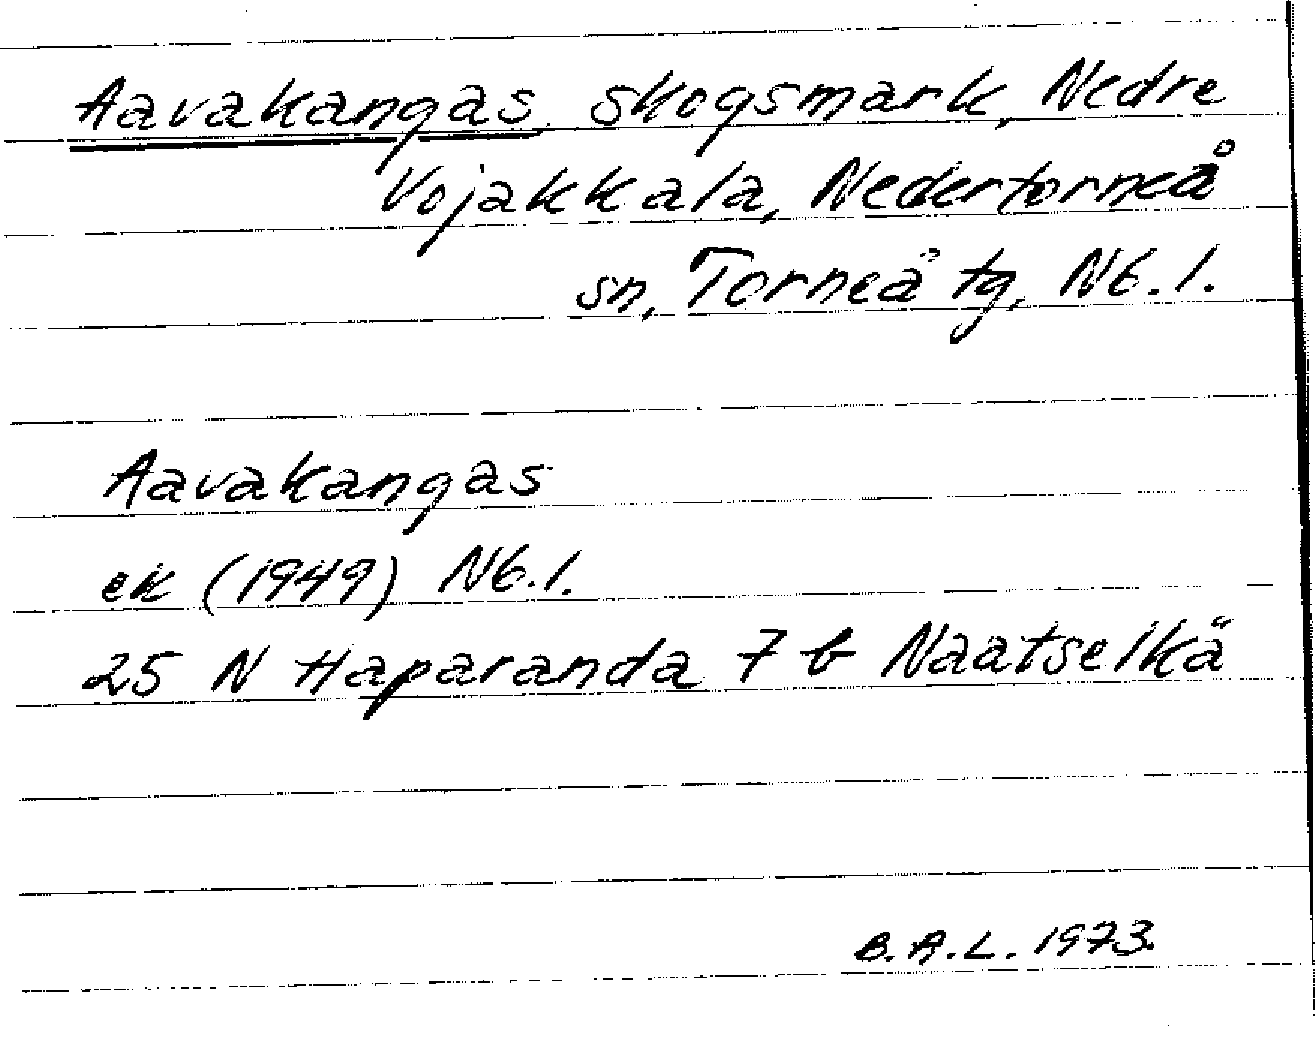 Aavakangas skogsmark, Nedre
Vojakkala, Nedertorneå
sn, Torneå tg, Nb.l.
Aavakangas
ek (1949) Nb.l.
25 N Haparanda 7 b Naatselkä
B.A.L. 1973.